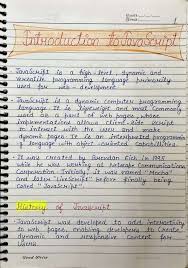 Introduction to JavaScript
• JavaScript is a high-level, dynamic and
versatile programming language primarily
used for web-development
• JavaScript is a dynamic computer programming
language. It is lightweight and most commonly
used as a part of web pages, whose
implementations allow client-side script
to interact with the user and make
dynamic pages. It is an interpreted programming
language with object oriented capabilities.
• It was created by Brendan Eich in 1995
while he was working at Netscape Communications
Corporation. Initially, it was named "Mocha"
and later "LiveScript" before finally being
called "JavaScript"
History of JavaScript
• JavaScript was developed to add interactivity
to web pages, enabling developers to create
dynamic and responsive content for
users